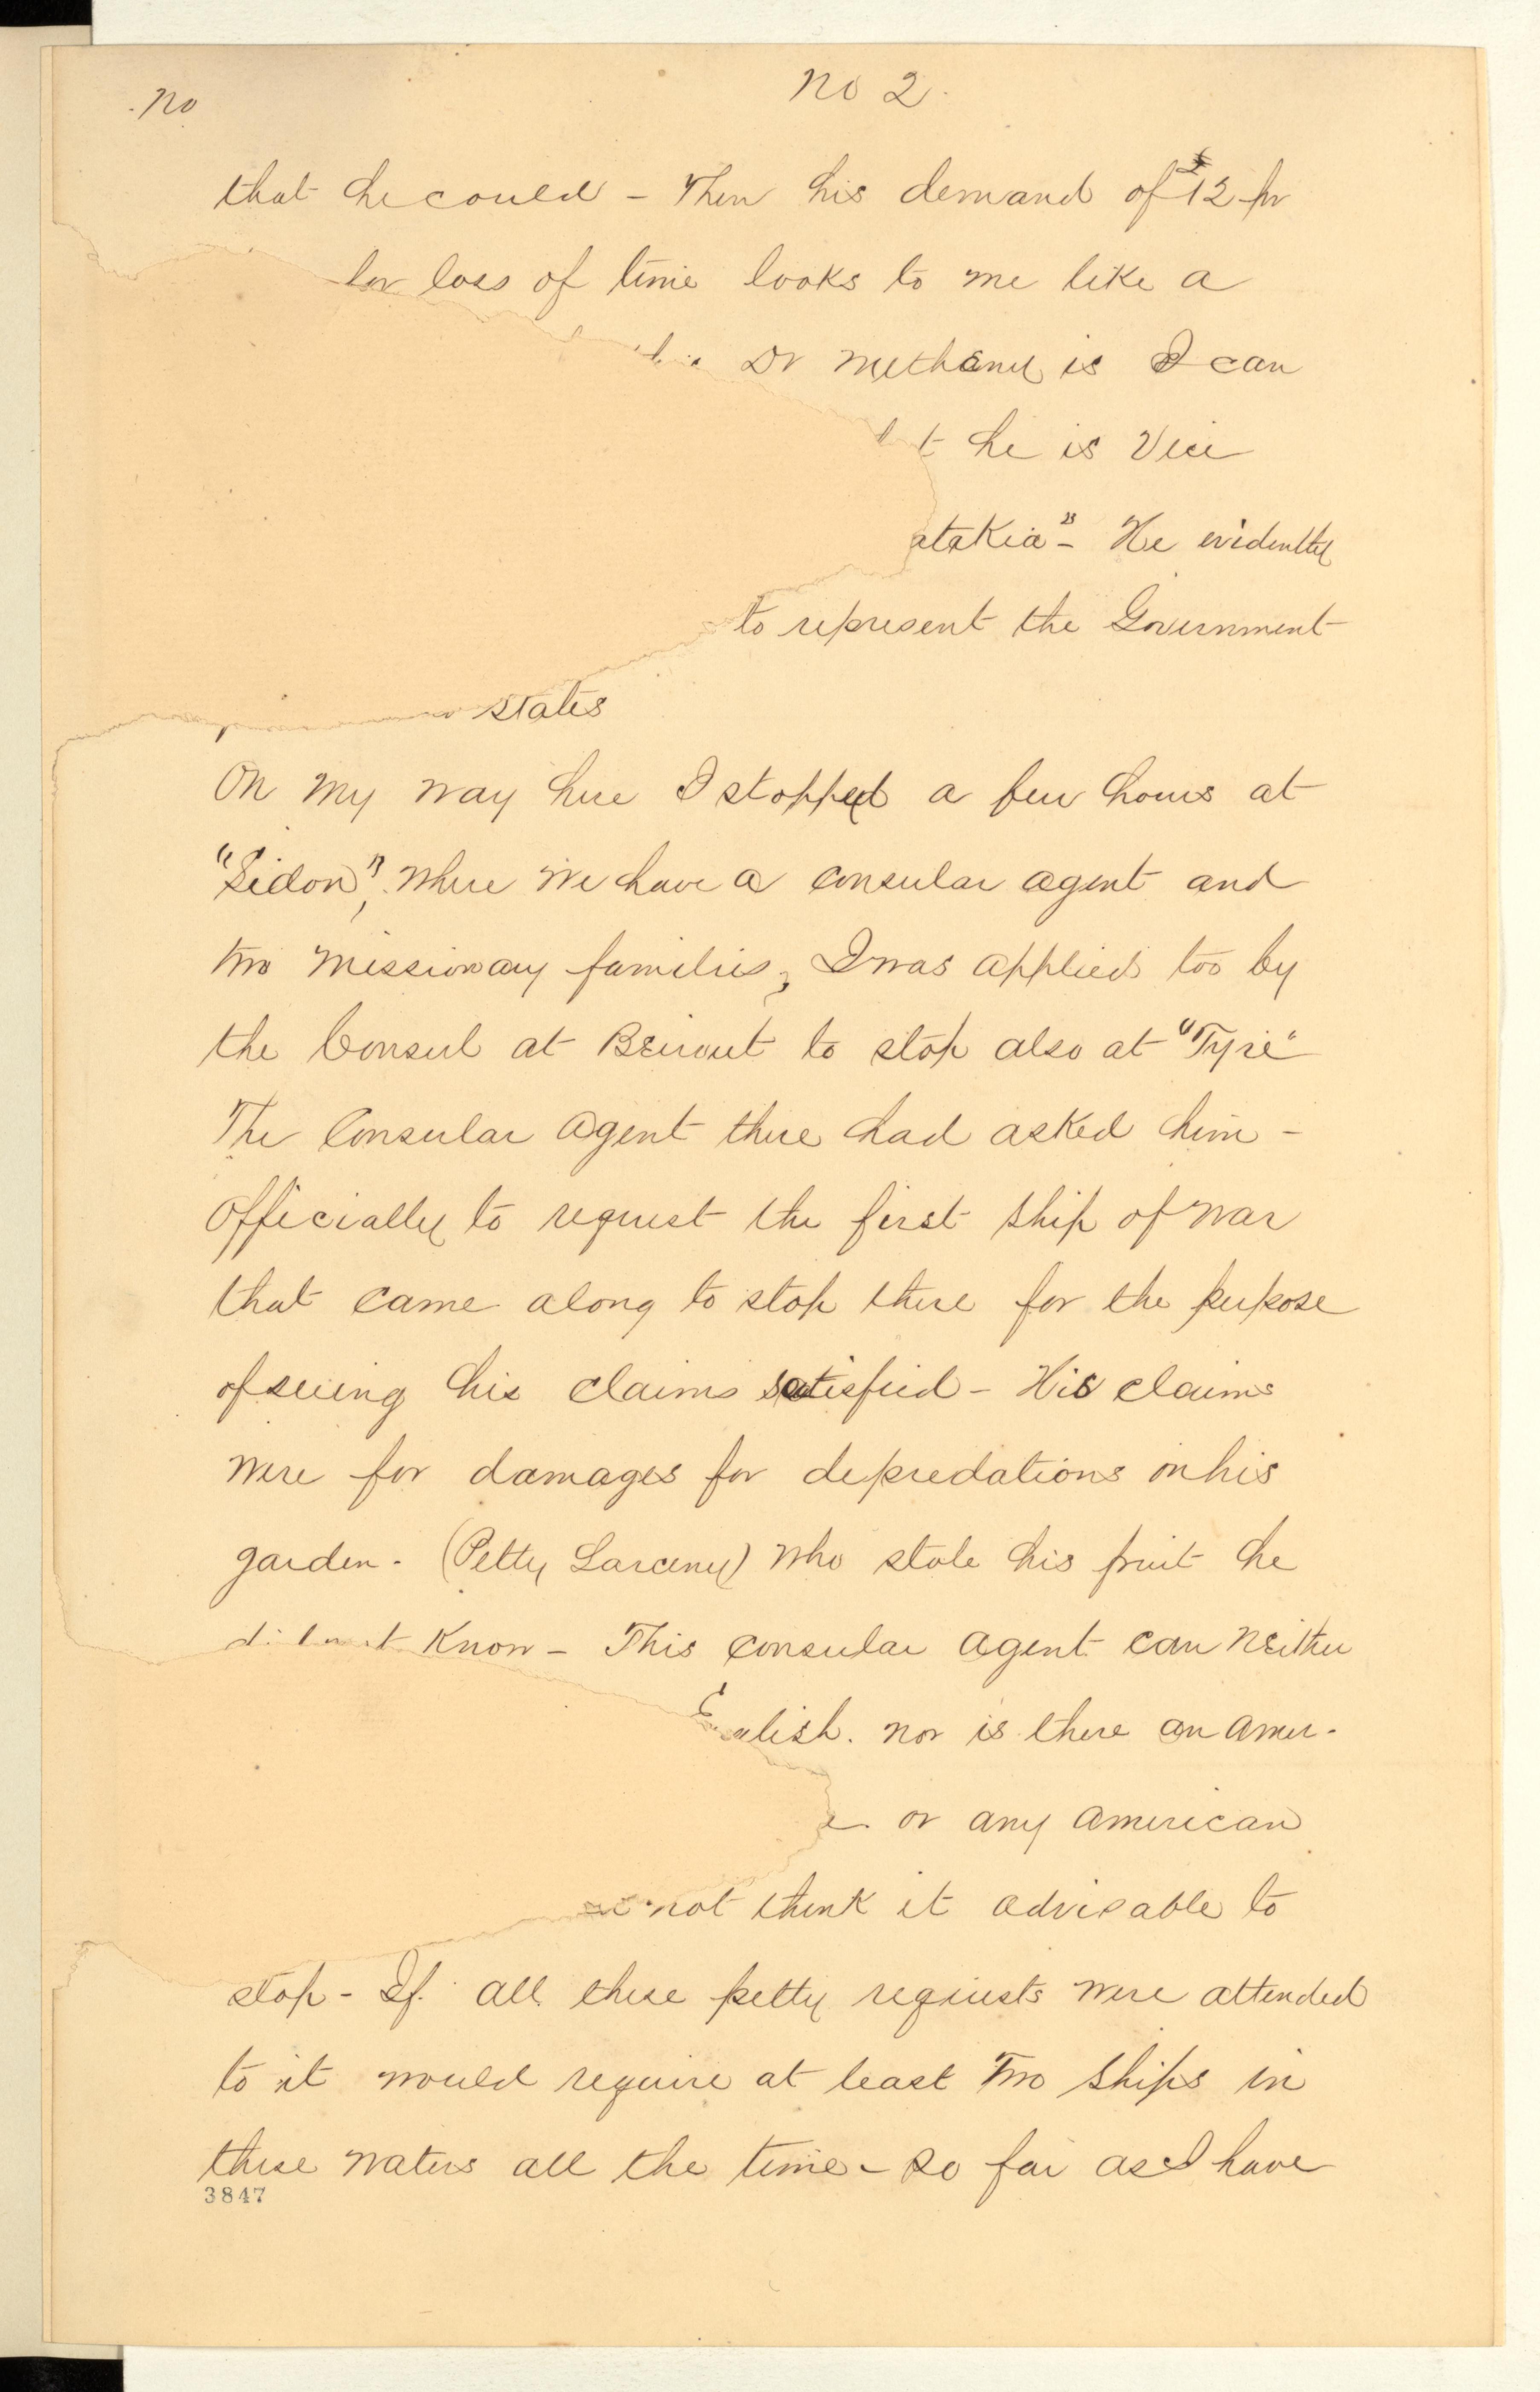 no
no 2.
that he could - Then his demand of $12 pr
for loss of time looks to me like a
Dr Metheny is I can
t he is Vice
atakia" - He evidently
to represent the Government
States
On my way here I stopped a few hours at
"Sidon", where we have a consular agent and
two missionary families, I was applied too by
the Consul at Beirout to stop also at "Tyre"
The Consular Agent there had asked him -
Officially to request the first ship of war
that came along to stop there for the purpose
of seeing his claims satisfied - His claims
were for damages for depredations on his
garden - (Petty Larceny) Who stole his fruit he
did not Know - This consular agent can neither
English. nor is there an Amer-
or any American
not think it advisable to
stop - If all these petty requests were attended
to it would require at least two ships in
these waters all the time - so far as I have
3847